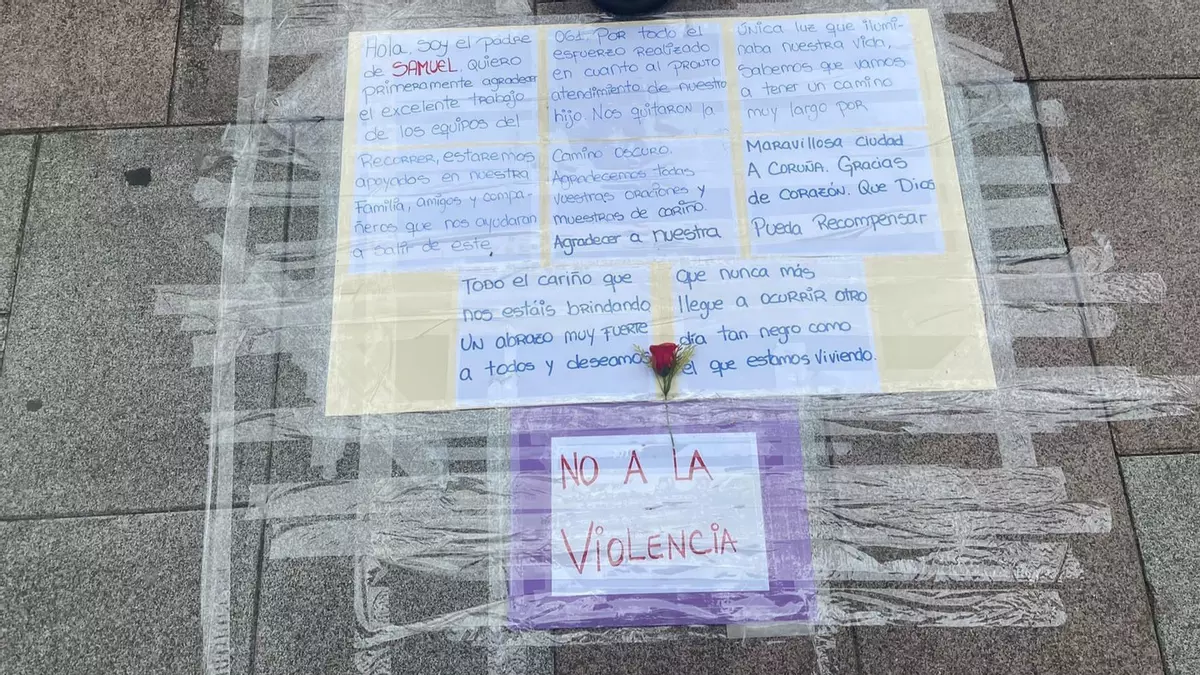 Hola, soy el padre
de SAMUEL. Quiero
primeramente agradecer
el excelente trabajo
de los equipos del
061. Por todo el
esfuerzo realizado
en cuanto al pronto
atendimiento de nuestro
hijo. Nos quitaron la
Única luz que ilumi-
naba nuestra vida,
sabemos que vamos
a tener un camino
muy largo por
Recorrer, estaremos
apoyados en nuestra
Familia, amigos y compa-
ñeros que nos ayudaran
a salir de este,
Camino oscuro.
Agradecemos todas
vuestras oraciones y
muestras de cariño
Agradecer a nuestra
Maravillosa ciudad
A Coruña. Gracias
de corazón. Que Dios
Pueda Recompensar
TODO el cariño que
nos estáis brindando
UN abrazo muy fuerte
a todos y deseamos
que nunca más
llegue a ocurrir otro
día tan negro como
el que estamos viviendo.
NO A LA
VIOLENCIA